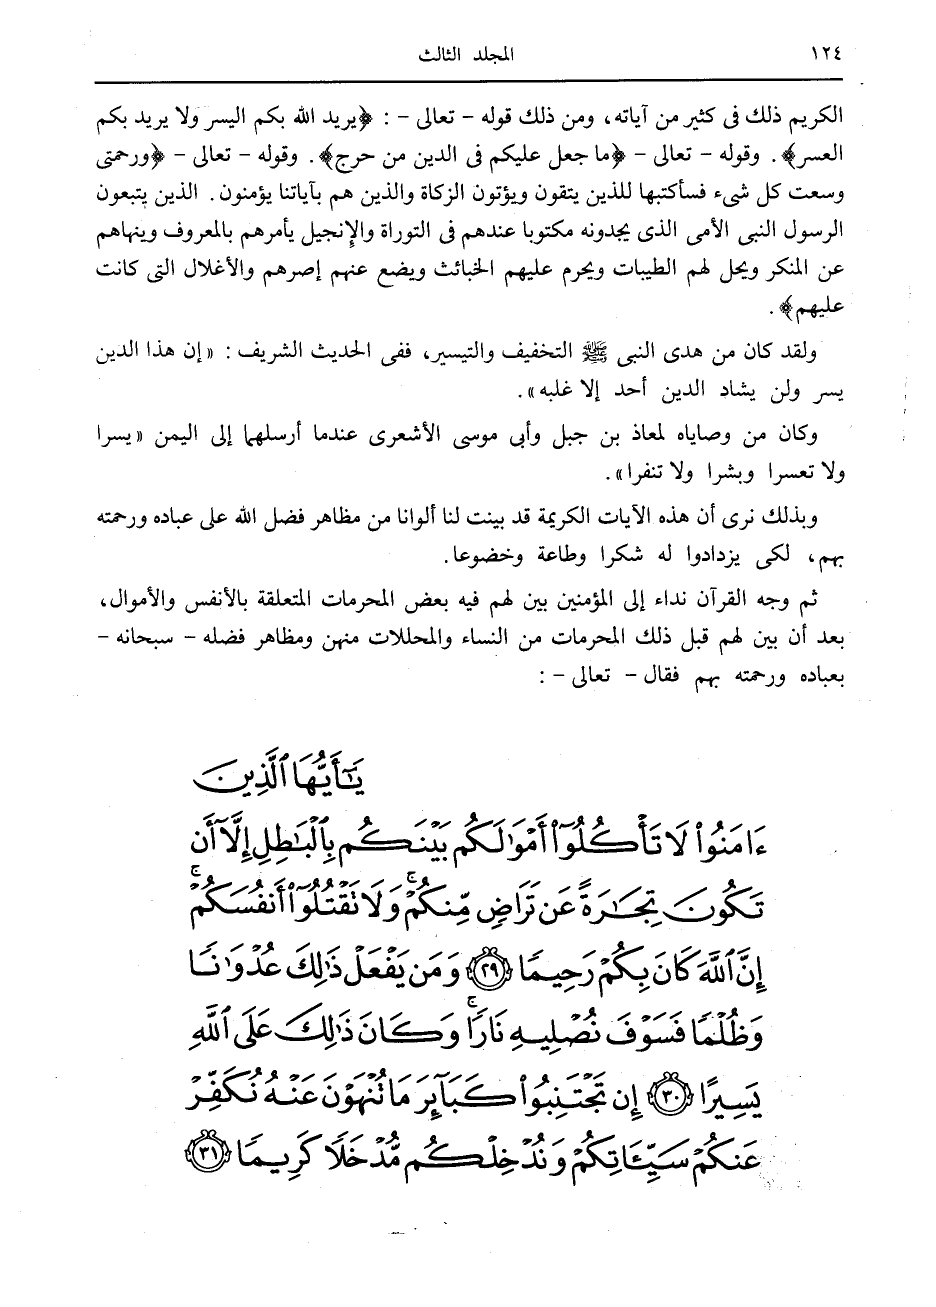 ١٢٤ المجلد الثالث
الكريم ذلك فى كثير من آياته، ومن ذلك قوله - تعالى - : ﴿يريد الله بكم اليسر ولا يريد بكم
العسر﴾ . وقوله - تعالى - ﴿ما جعل عليكم فى الدين من حرج﴾ . وقوله - تعالى - ﴿ورحمتى
وسعت كل شىء فسأكتبها للذين يتقون ويؤتون الزكاة والذين هم بآياتنا يؤمنون . الذين يتبعون
الرسول النبى الأمى الذى يجدونه مكتوبا عندهم فى التوراة والإنجيل يأمرهم بالمعروف وينهاهم
عن المنكر ويحل لهم الطيبات ويحرم عليهم الخبائث ويضع عنهم إصرهم والأغلال التى كانت
عليهم﴾ .
ولقد كان من هدى النبى ﷺ التخفيف والتيسير، ففى الحديث الشريف : «إن هذا الدين
يسر ولن يشاد الدين أحد إلا غلبه» .
وكان من وصاياه لمعاذ بن جبل وأبى موسى الأشعرى عندما أرسلهما إلى اليمن «يسرا
ولا تعسرا وبشرا ولا تنفرا» .
وبذلك نرى أن هذه الآيات الكريمة قد بينت لنا ألوانا من مظاهر فضل الله على عباده ورحمته
بهم، لكى يزدادوا له شكرا وطاعة وخضوعا .
ثم وجه القرآن نداء إلى المؤمنين بين لهم فيه بعض المحرمات المتعلقة بالأنفس والأموال،
بعد أن بين لهم قبل ذلك المحرمات من النساء والمحللات منهن ومظاهر فضله - سبحانه -
بعباده ورحمته بهم فقال - تعالى - :
يَٰٓأَيُّهَا ٱلَّذِينَ
ءَامَنُوا۟ لَا تَأْكُلُوٓا۟ أَمْوَٰلَكُم بَيْنَكُم بِٱلْبَٰطِلِ إِلَّآ أَن
تَكُونَ تِجَٰرَةً عَن تَرَاضٍ مِّنكُمْ ۚ وَلَا تَقْتُلُوٓا۟ أَنفُسَكُمْ ۚ
إِنَّ ٱللَّهَ كَانَ بِكُمْ رَحِيمًا ٢٩ وَمَن يَفْعَلْ ذَٰلِكَ عُدْوَٰنًا
وَظُلْمًا فَسَوْفَ نُصْلِيهِ نَارًا ۚ وَكَانَ ذَٰلِكَ عَلَى ٱللَّهِ
يَسِيرًا ٣٠ إِن تَجْتَنِبُوا۟ كَبَآئِرَ مَا تُنْهَوْنَ عَنْهُ نُكَفِّرْ
عَنكُمْ سَيِّـَٔاتِكُمْ وَنُدْخِلْكُم مُّدْخَلًا كَرِيمًا ٣١